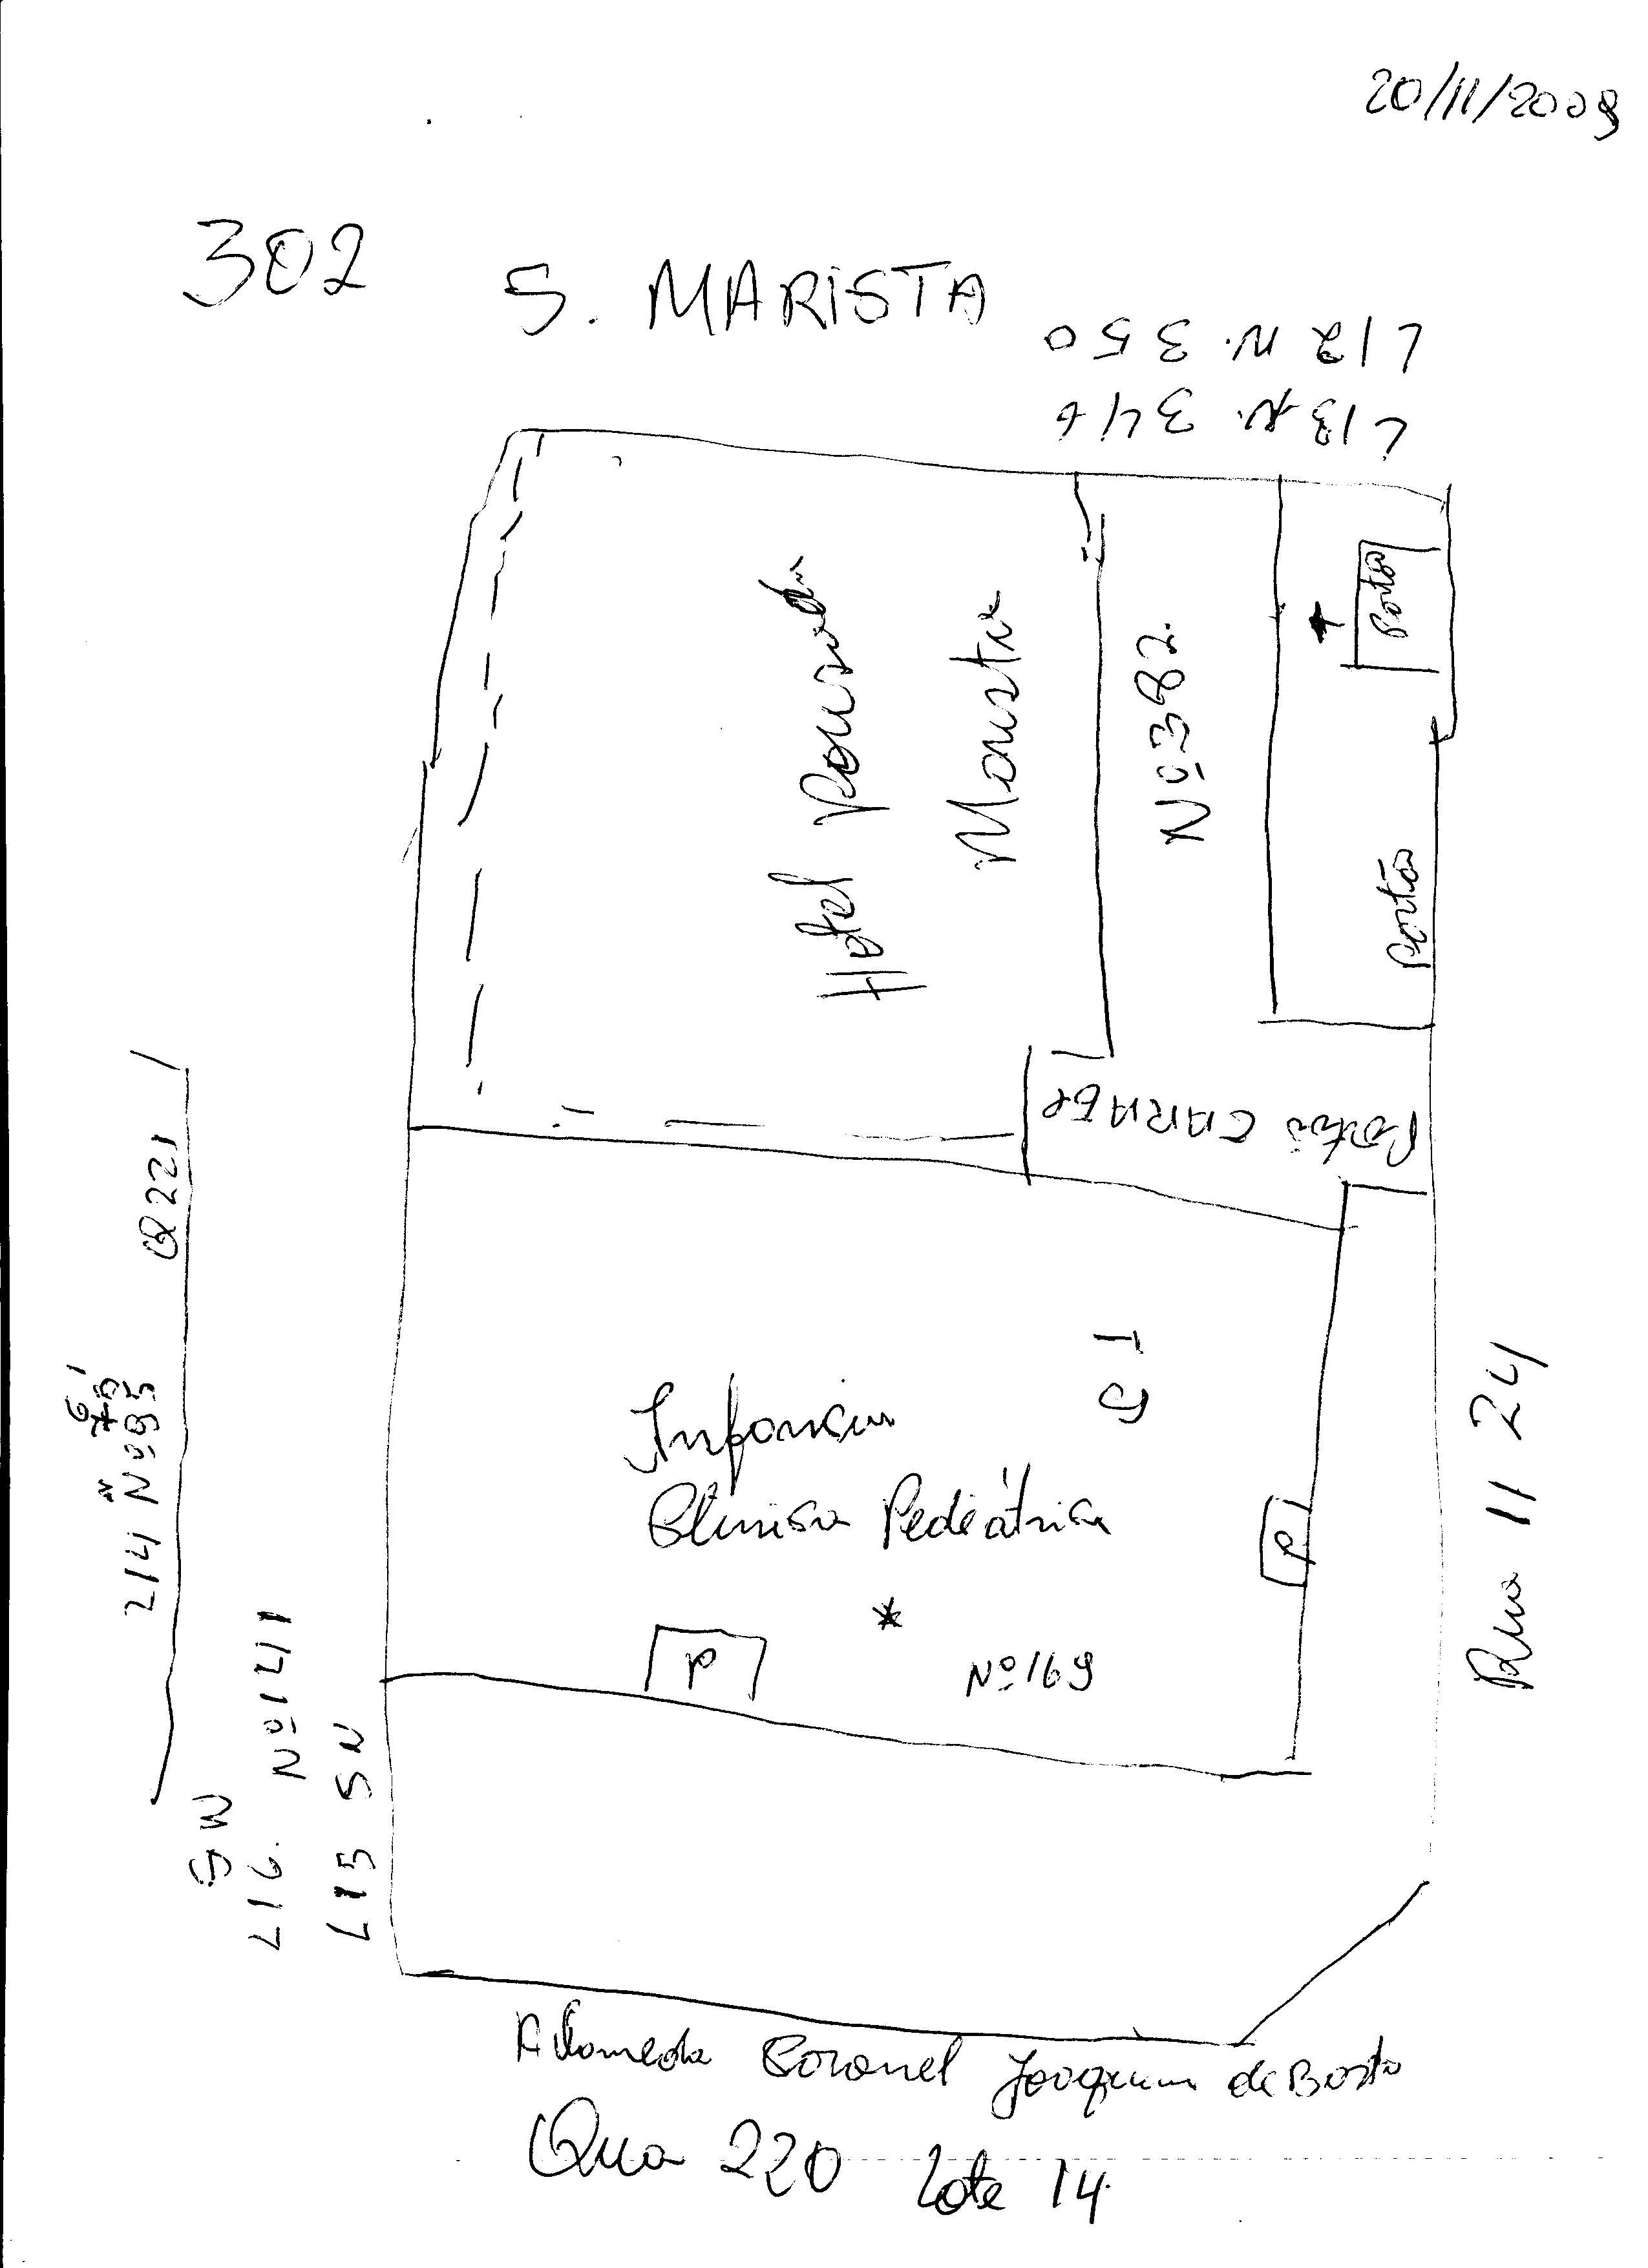 20/11/2009
302
S. MARISTA
L12 N. 350
L13 N. 346
Hotel Pousada
Marista
Nº 382.
Portão
Portão
Portão GARAGE
Q221
214 Nº 95
L16. Nº 141
L15 SN
Infancia
Clinica Pediátrica
P
P
Nº 169
Rua 11 24
Alameda Coronel Joaquim de Basto
Qua 220 Lote 14